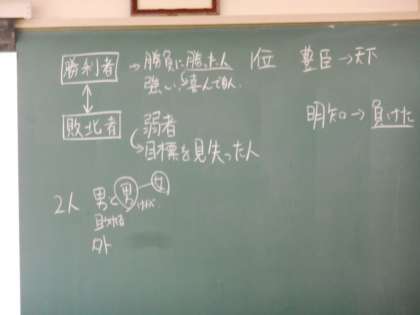 勝利者 → 勝負に勝った人 1位 豊臣→天下
強い、喜んでる人
明知→負けた
敗北者 弱者
→目標を見失った人
2人 男 男 女
外